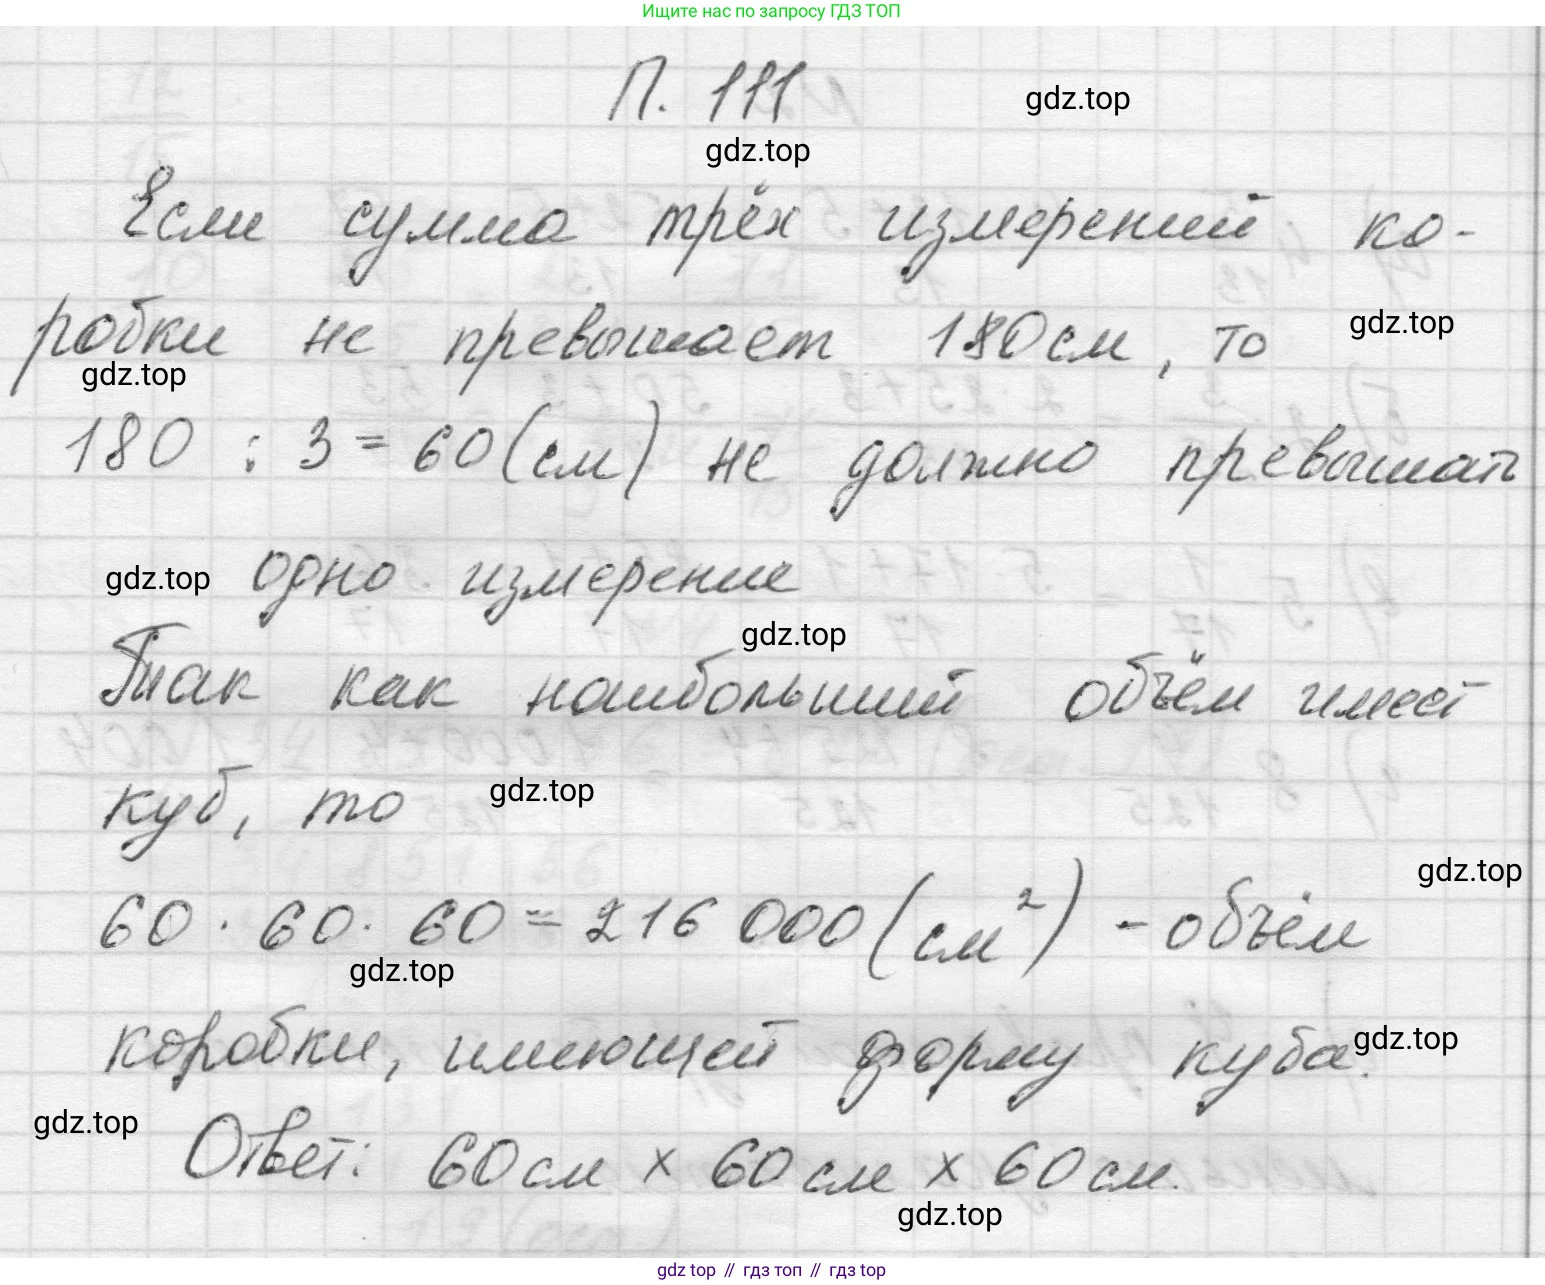 Ищите нас по запросу ГДЗ ТОП
П. 111
gdz.top
gdz.top
Если сумма трёх измерений ко-
робки не превышает 180 см, то
gdz.top
gdz.top
180 : 3 = 60 (см) не должно превышать
gdz.top
одно измерение
gdz.top
Так как наибольший объём имеет
куб, то
gdz.top
gdz.top
60 · 60 · 60 = 216 000 (см²) - объём
gdz.top
коробки, имеющей форму куба.
gdz.top
gdz.top
Ответ: 60 см × 60 см × 60 см.
gdz.top
gdz top // гдз топ // гдз top